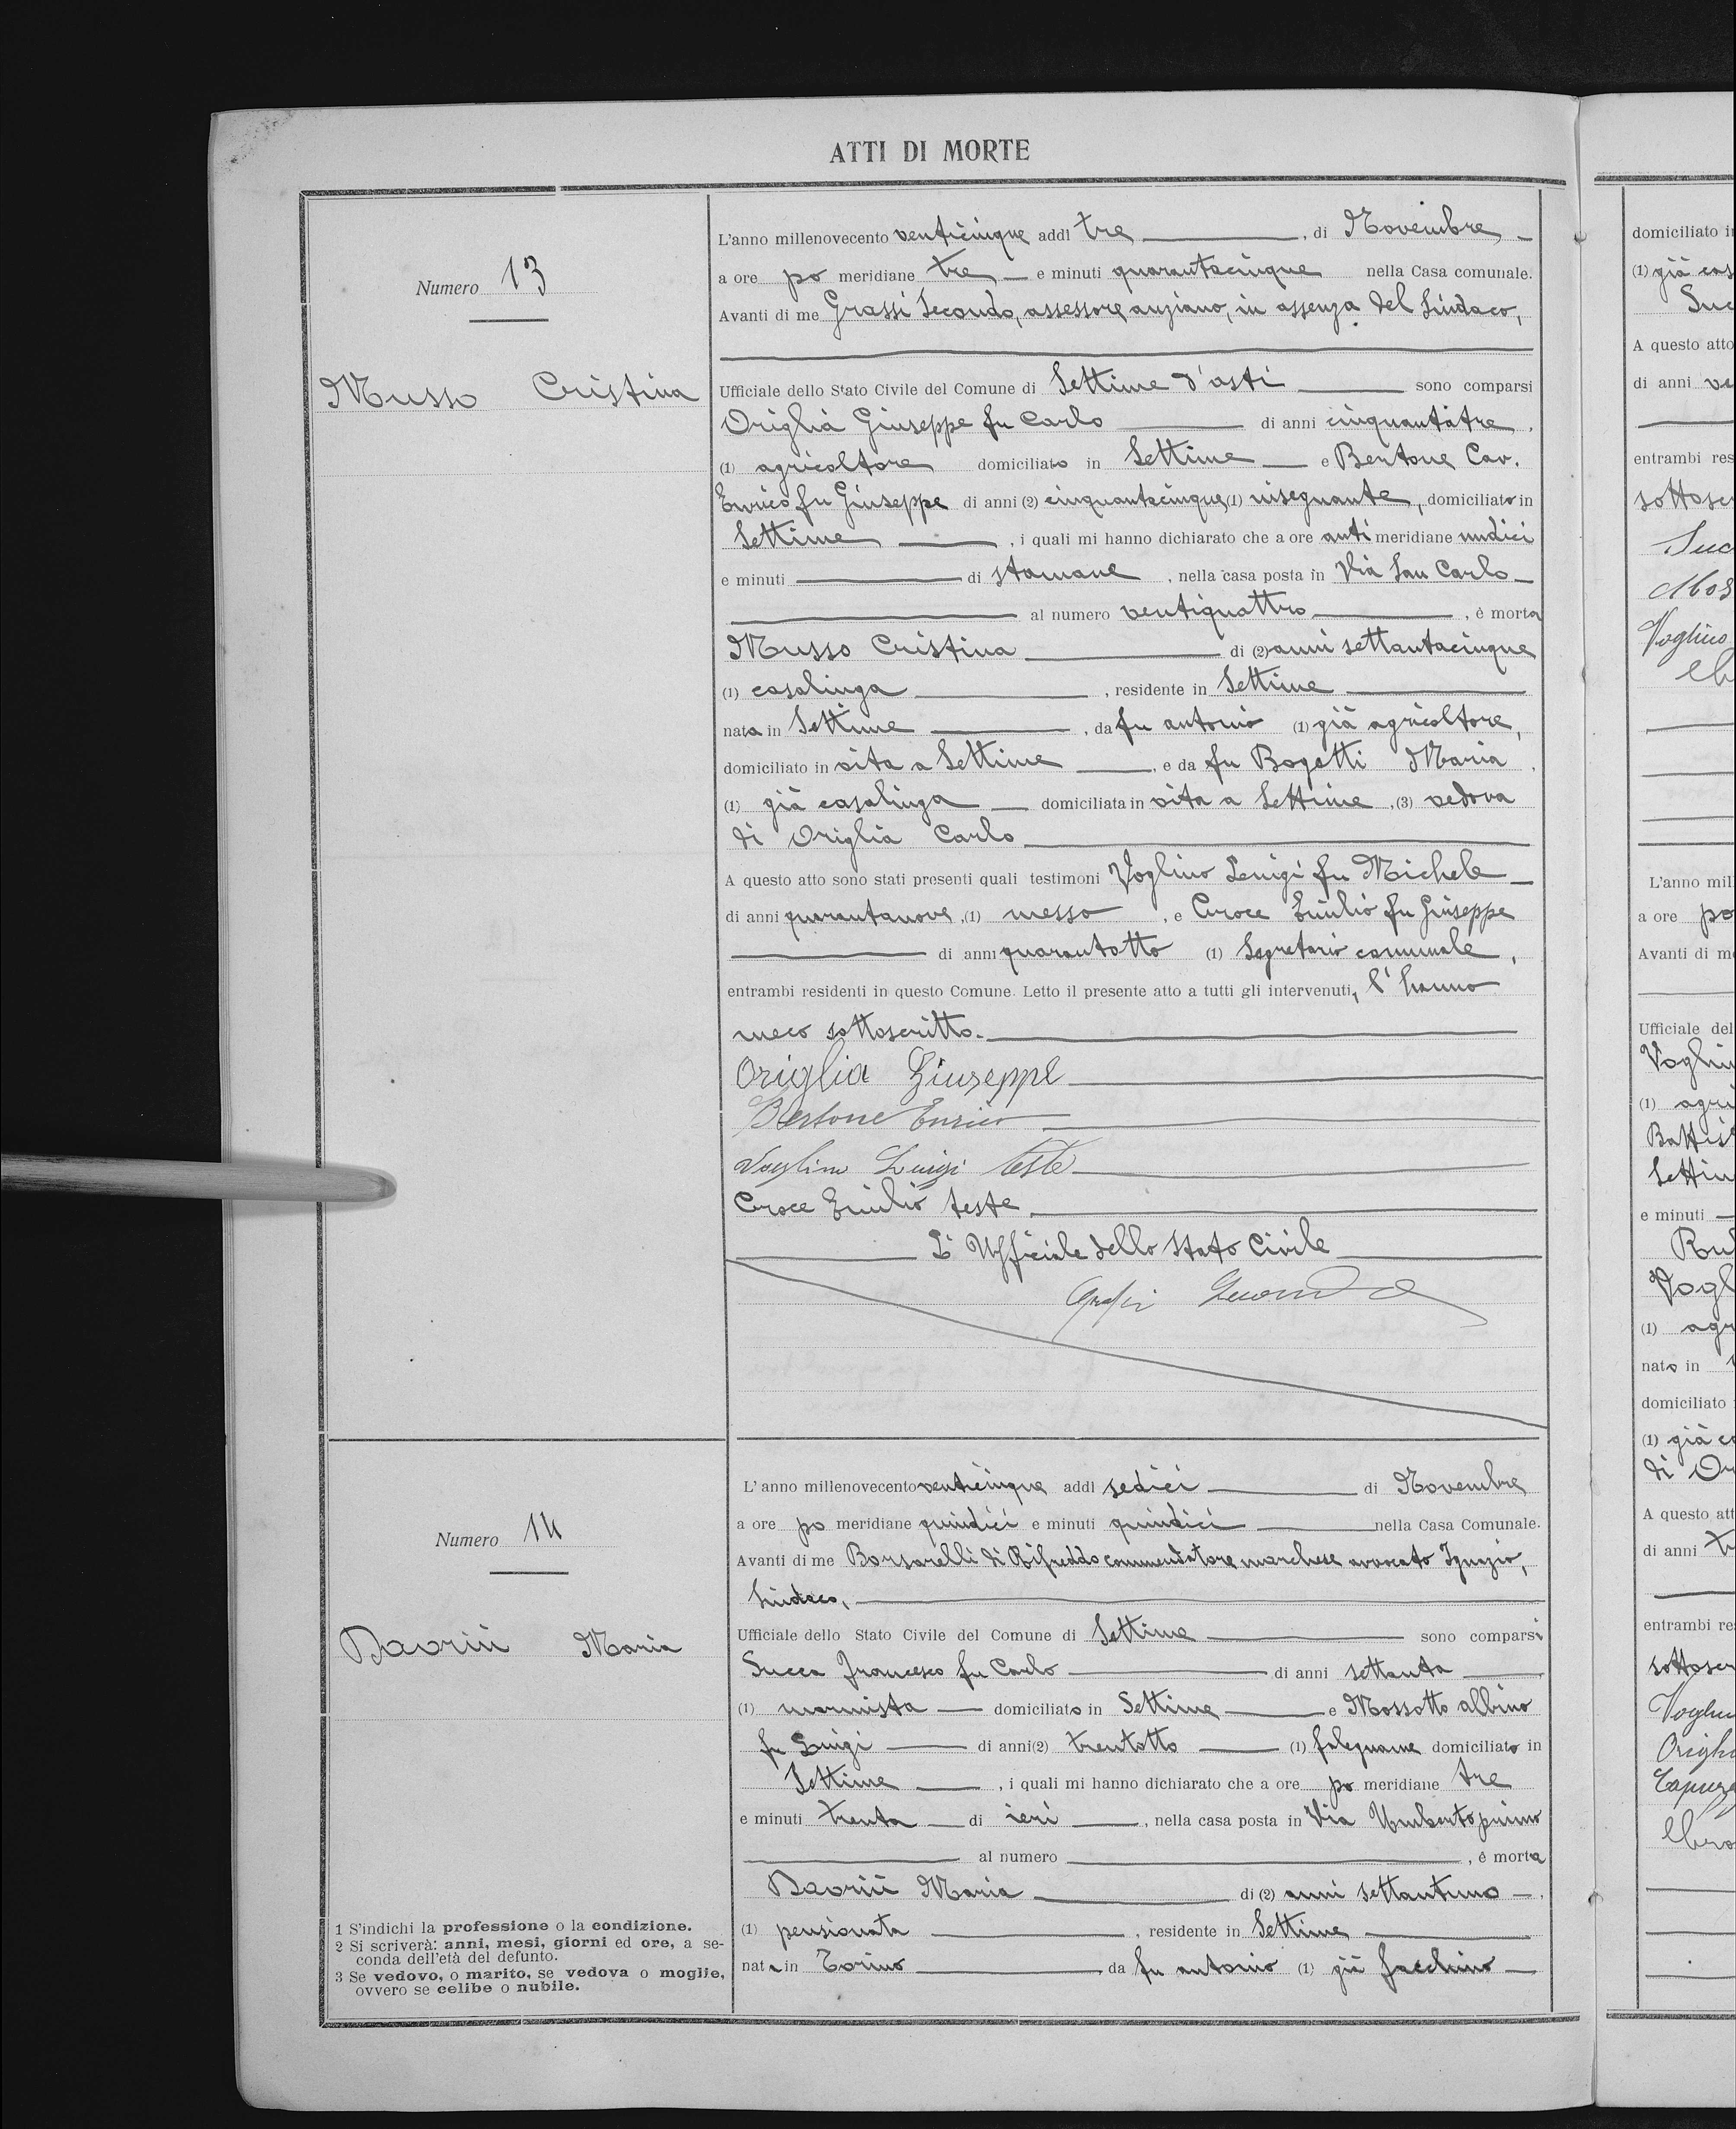 ATTI DI MORTE
Numero 13
Musso Cristina
L'anno millenovecento venticinque addì tre , di Novembre
a ore po meridiane tre e minuti quarantacinque nella Casa comunale.
Avanti di me Grassi Secondo, assessore anziano, in assenza del Sindaco,
Ufficiale dello Stato Civile del Comune di Settime d'asti sono comparsi
Origlia Giuseppe fu Carlo di anni cinquantatre ,
(1) agricoltore domiciliato in Settime e Bertone Cav.
Enrico fu Giuseppe di anni (2) cinquantacinque, (1) insegnante , domiciliato in
Settime , i quali mi hanno dichiarato che a ore anti meridiane undici
e minuti di stamane , nella casa posta in Via San Carlo
al numero ventiquattro , è morta
Musso Cristina di (2) anni settantacinque
(1) casalinga , residente in Settime
nata in Settime , da fu antonio (1) già agricoltore,
domiciliato in vita a Settime , e da fu Bogetti Maria ,
(1) già casalinga domiciliata in vita a Settime , (3) vedova
di Origlia Carlo
A questo atto sono stati presenti quali testimoni Voglino Luigi fu Michele
di anni quarantanove , (1) messo , e Croce Emilio fu Giuseppe
di anni quarantotto (1) Segretario comunale ,
entrambi residenti in questo Comune. Letto il presente atto a tutti gli intervenuti, l'hanno
meco sottoscritto.
Origlia Giuseppe
Bertone Enrico
Voglino Luigi teste
Croce Emilio teste
L'Ufficiale dello Stato Civile
Grassi Secondo
Numero 14
Davriù Maria
L'anno millenovecento venticinque addì sedici di Novembre
a ore po meridiane quindici e minuti quindici nella Casa Comunale.
Avanti di me Borsarelli di Rifreddo commendatore marchese avvocato Ignazio,
Sindaco,
Ufficiale dello Stato Civile del Comune di Settime sono comparsi
Succa Francesco fu Carlo di anni settanta ,
(1) domiciliato in Settime e Mossotto albino
fu Luigi di anni (2) trentotto (1) falegname domiciliato in
Settime , i quali mi hanno dichiarato che a ore po meridiane tre
e minuti trenta di ieri , nella casa posta in Via Umberto primo
al numero , è morta
Davriù Maria di (2) anni settantuno ,
(1) pensionata , residente in Settime
nata in Torino da fu antonio (1) già facchino
1 S'indichi la professione o la condizione.
2 Si scriverà: anni, mesi, giorni ed ore, a se-
conda dell'età del defunto.
3 Se vedovo, o marito, se vedova o moglie,
ovvero se celibe o nubile.
domiciliato i
(1) già cas
Suc
A questo atto
di anni ve
entrambi res
sottoscr
Suc
Mos
Voglino
L'anno mil
a ore po
Avanti di m
Ufficiale del
Voglin
(1) agri
Battis
Settim
e minuti
Vogl
(1) agr
nato in
domiciliato
(1) già c
di Or
A questo att
di anni tr
entrambi re
sottoscr
Voglin
Origli